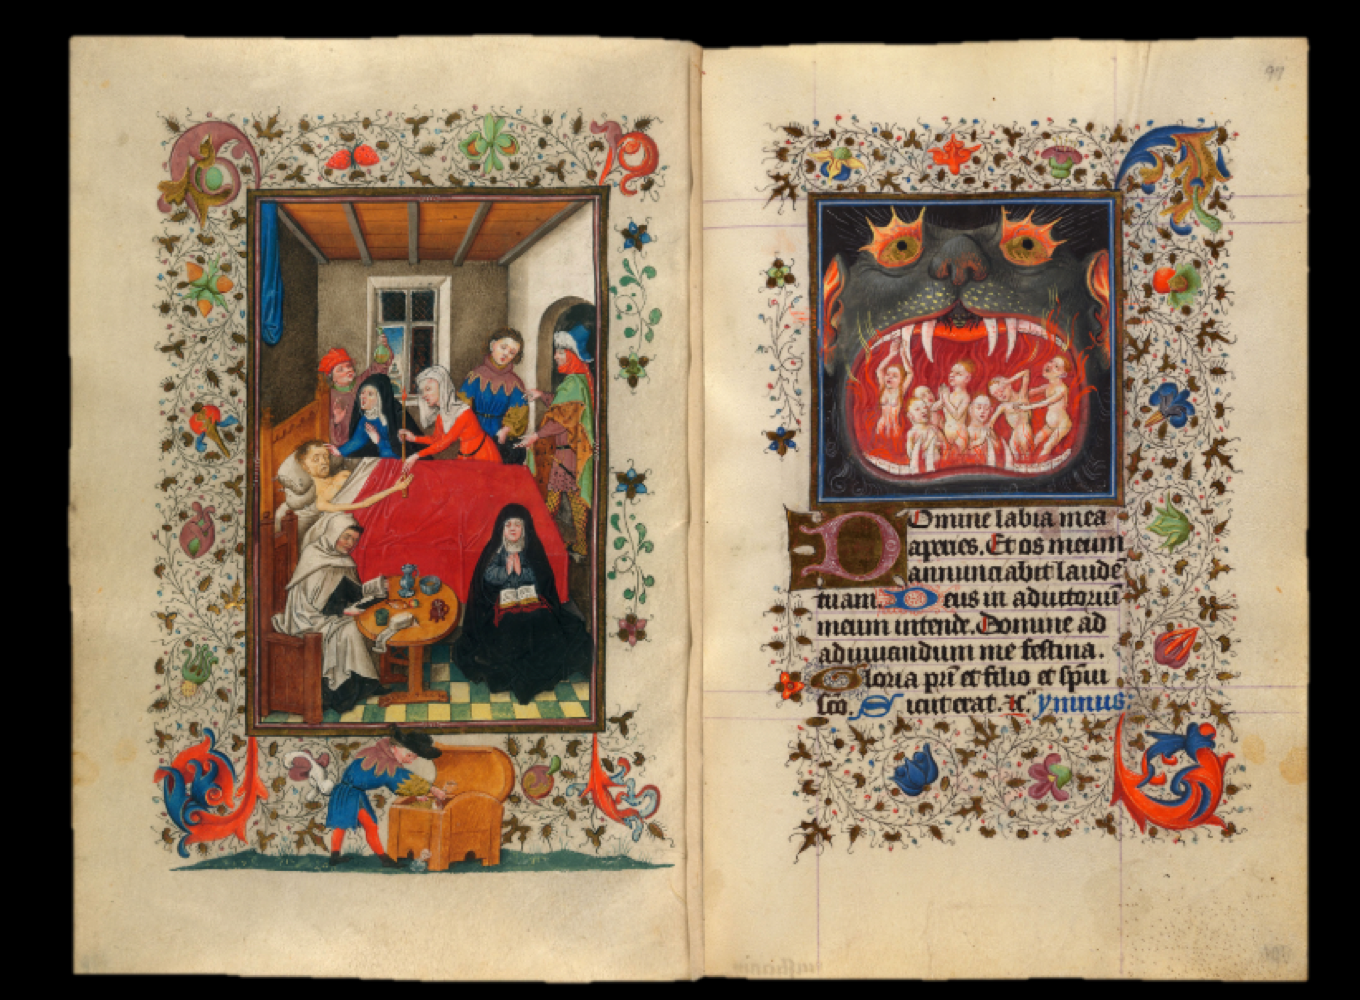 97
Domine labia mea
aperies. Et os meum
annunciabit laudē
tuam. Deus in adiutoriū
meum intende. Domine ad
adiuuandum me festina.
Gloria pr̄i et filio et sp̄ui
sc̄o. Sicut erat. ⁊c̄. ymnus